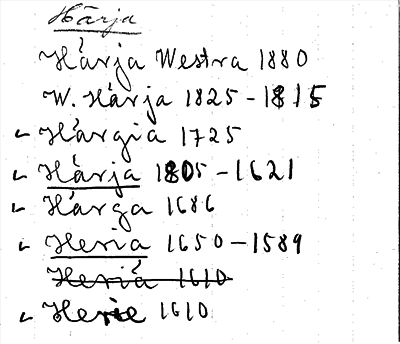 Härja
Härja Westra 1880
W. Härja 1825-1815
Härgia 1725
Härja 1805-1621
Härga 1686
Heria 1650-1589
Heriä 1610
Herie 1610